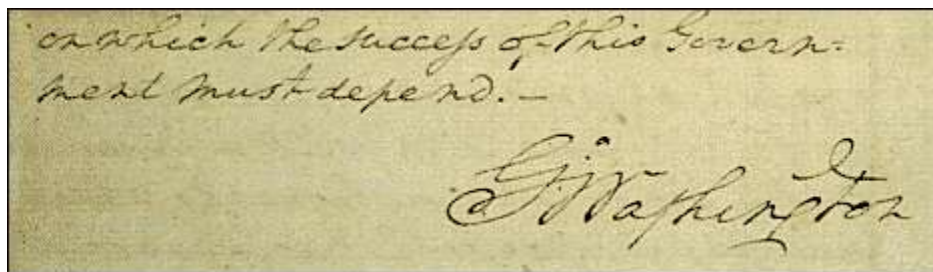 on which the success of this Govern=
ment must depend. —
G:Washington